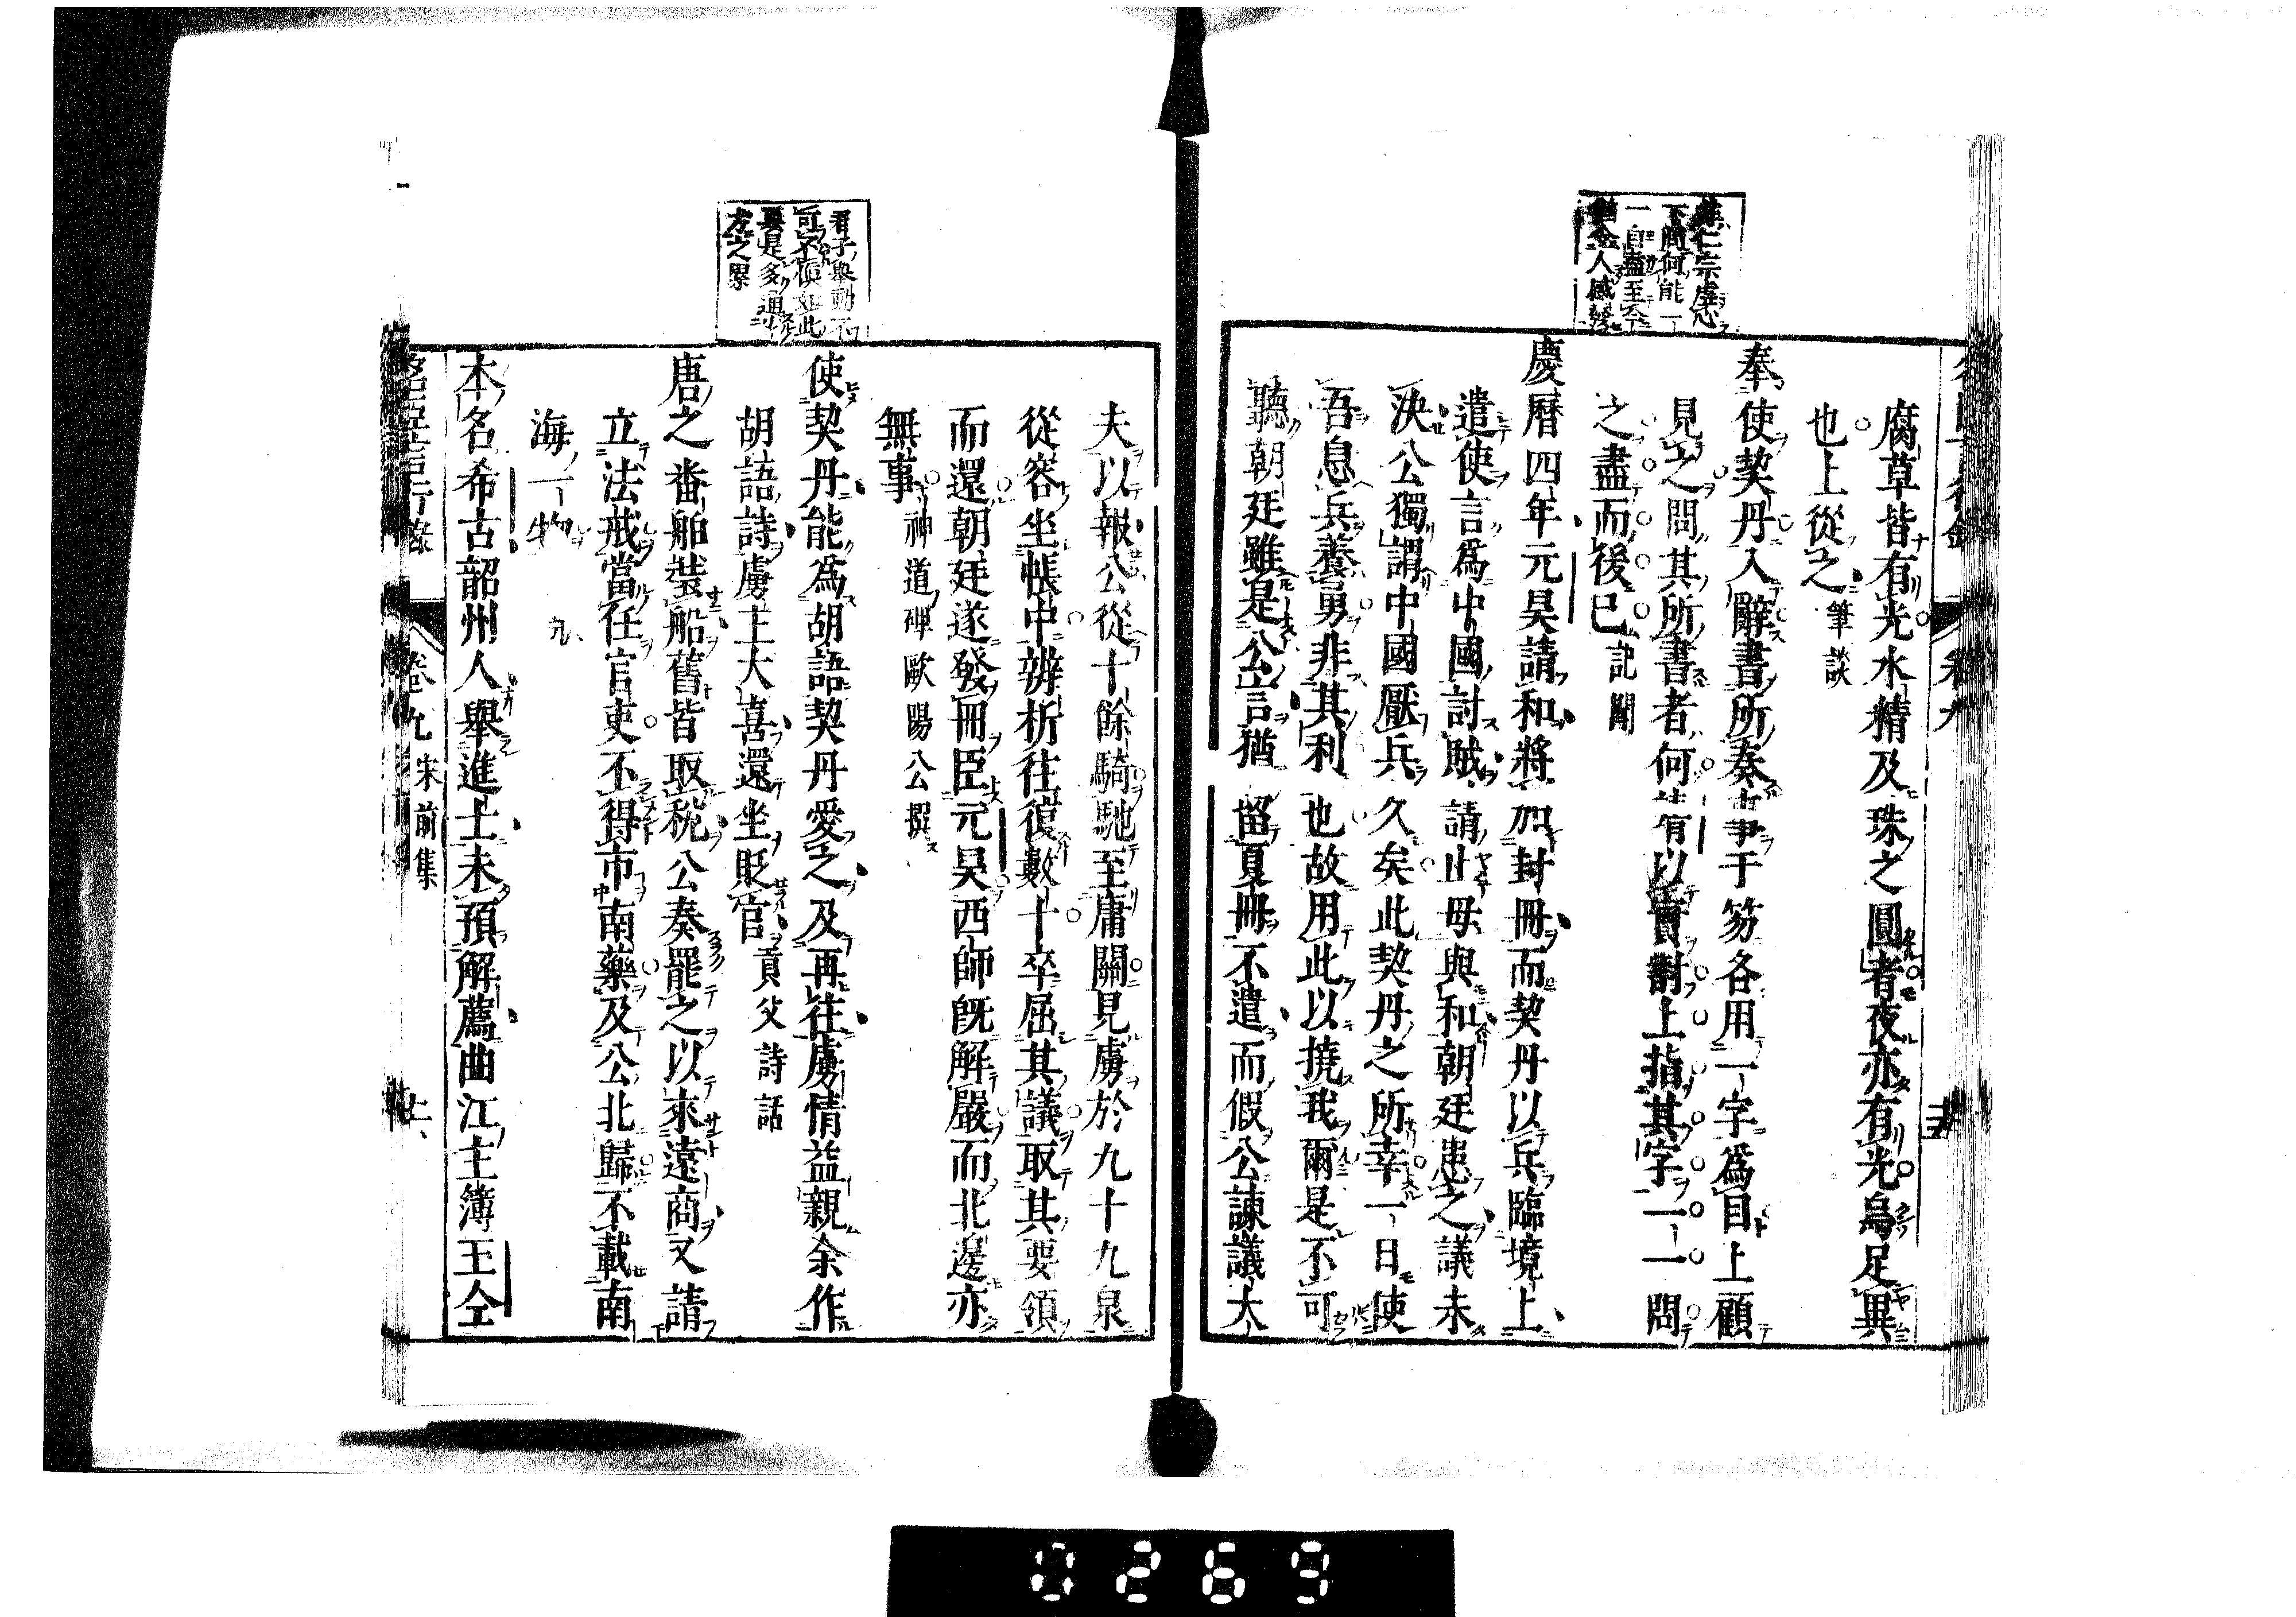 仁宗虚心
下問何能一
一自盡至今
猶令人感發
腐草皆有光水精及珠之圓者夜亦有光烏足異
也上從之筆談
奉使契丹入辭書所奏事于笏各用一字爲目上顧
見之問其所書者何靖以實對上指其字一一問
之盡而後已記聞
慶曆四年元昊請和將加封冊而契丹以兵臨境上
遣使言爲中國討賊請止毋與和朝廷患之議未
決公獨謂中國厭兵久矣此契丹之所幸一日使
吾息兵養勇非其利也故用此以撓我爾是不可
聽朝廷雖是公言猶留夏冊不遣而假公諫議大
君子舉動不
可不愼如此
要是多通
方之累
夫以報公從十餘騎馳至庸關見虜於九十九泉
從容坐帳中辨析往復數十卒屈其議取其要領
而還朝廷遂發冊臣元昊西師旣解嚴而北邊亦
無事神道碑歐陽公撰
使契丹能為胡語契丹愛之及再往虜情益親余作
胡語詩虜主大喜還坐貶官貢父詩話
唐之番舶裝船舊皆取稅公奏罷之以來遠商又請
立法戒當任官吏不得市南藥及公北歸不載南
海一物
本名希古韶州人舉進士未預解薦曲江主簿王仝
名臣言行錄 卷九 宋前集